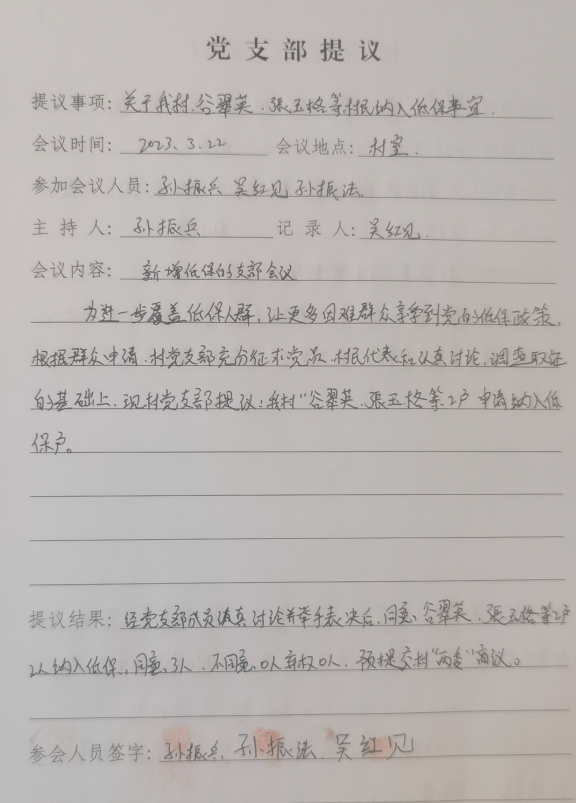 党支部提议
提议事项: 关于我村谷翠英、张玉格等村民纳入低保事宜.
会议时间: 2023.3.22 会议地点: 村室.
参加会议人员: 孙振兵 吴红见 孙振法
主持人: 孙振兵 记录人: 吴红见.
会议内容: 新增低保的支部会议
为进一步覆盖低保人群,让更多困难群众享受到党的低保政策,
根据群众申请.村党支部充分征求党员、村民代表和认真讨论,调查取证
的基础上,现村党支部提议:我村"谷翠英、张玉格等2户申请纳入低
保户。
提议结果: 经党支部成员认真讨论并举手表决后,同意谷翠英、张玉格等2户
2人纳入低保,同意3人、不同意0人弃权0人,预提交村"两委"商议。
参会人员签字: 孙振兵、孙振法、吴红见